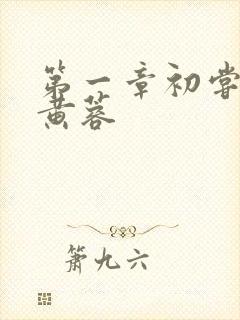 第一章初尝
黄蓉
箫九六